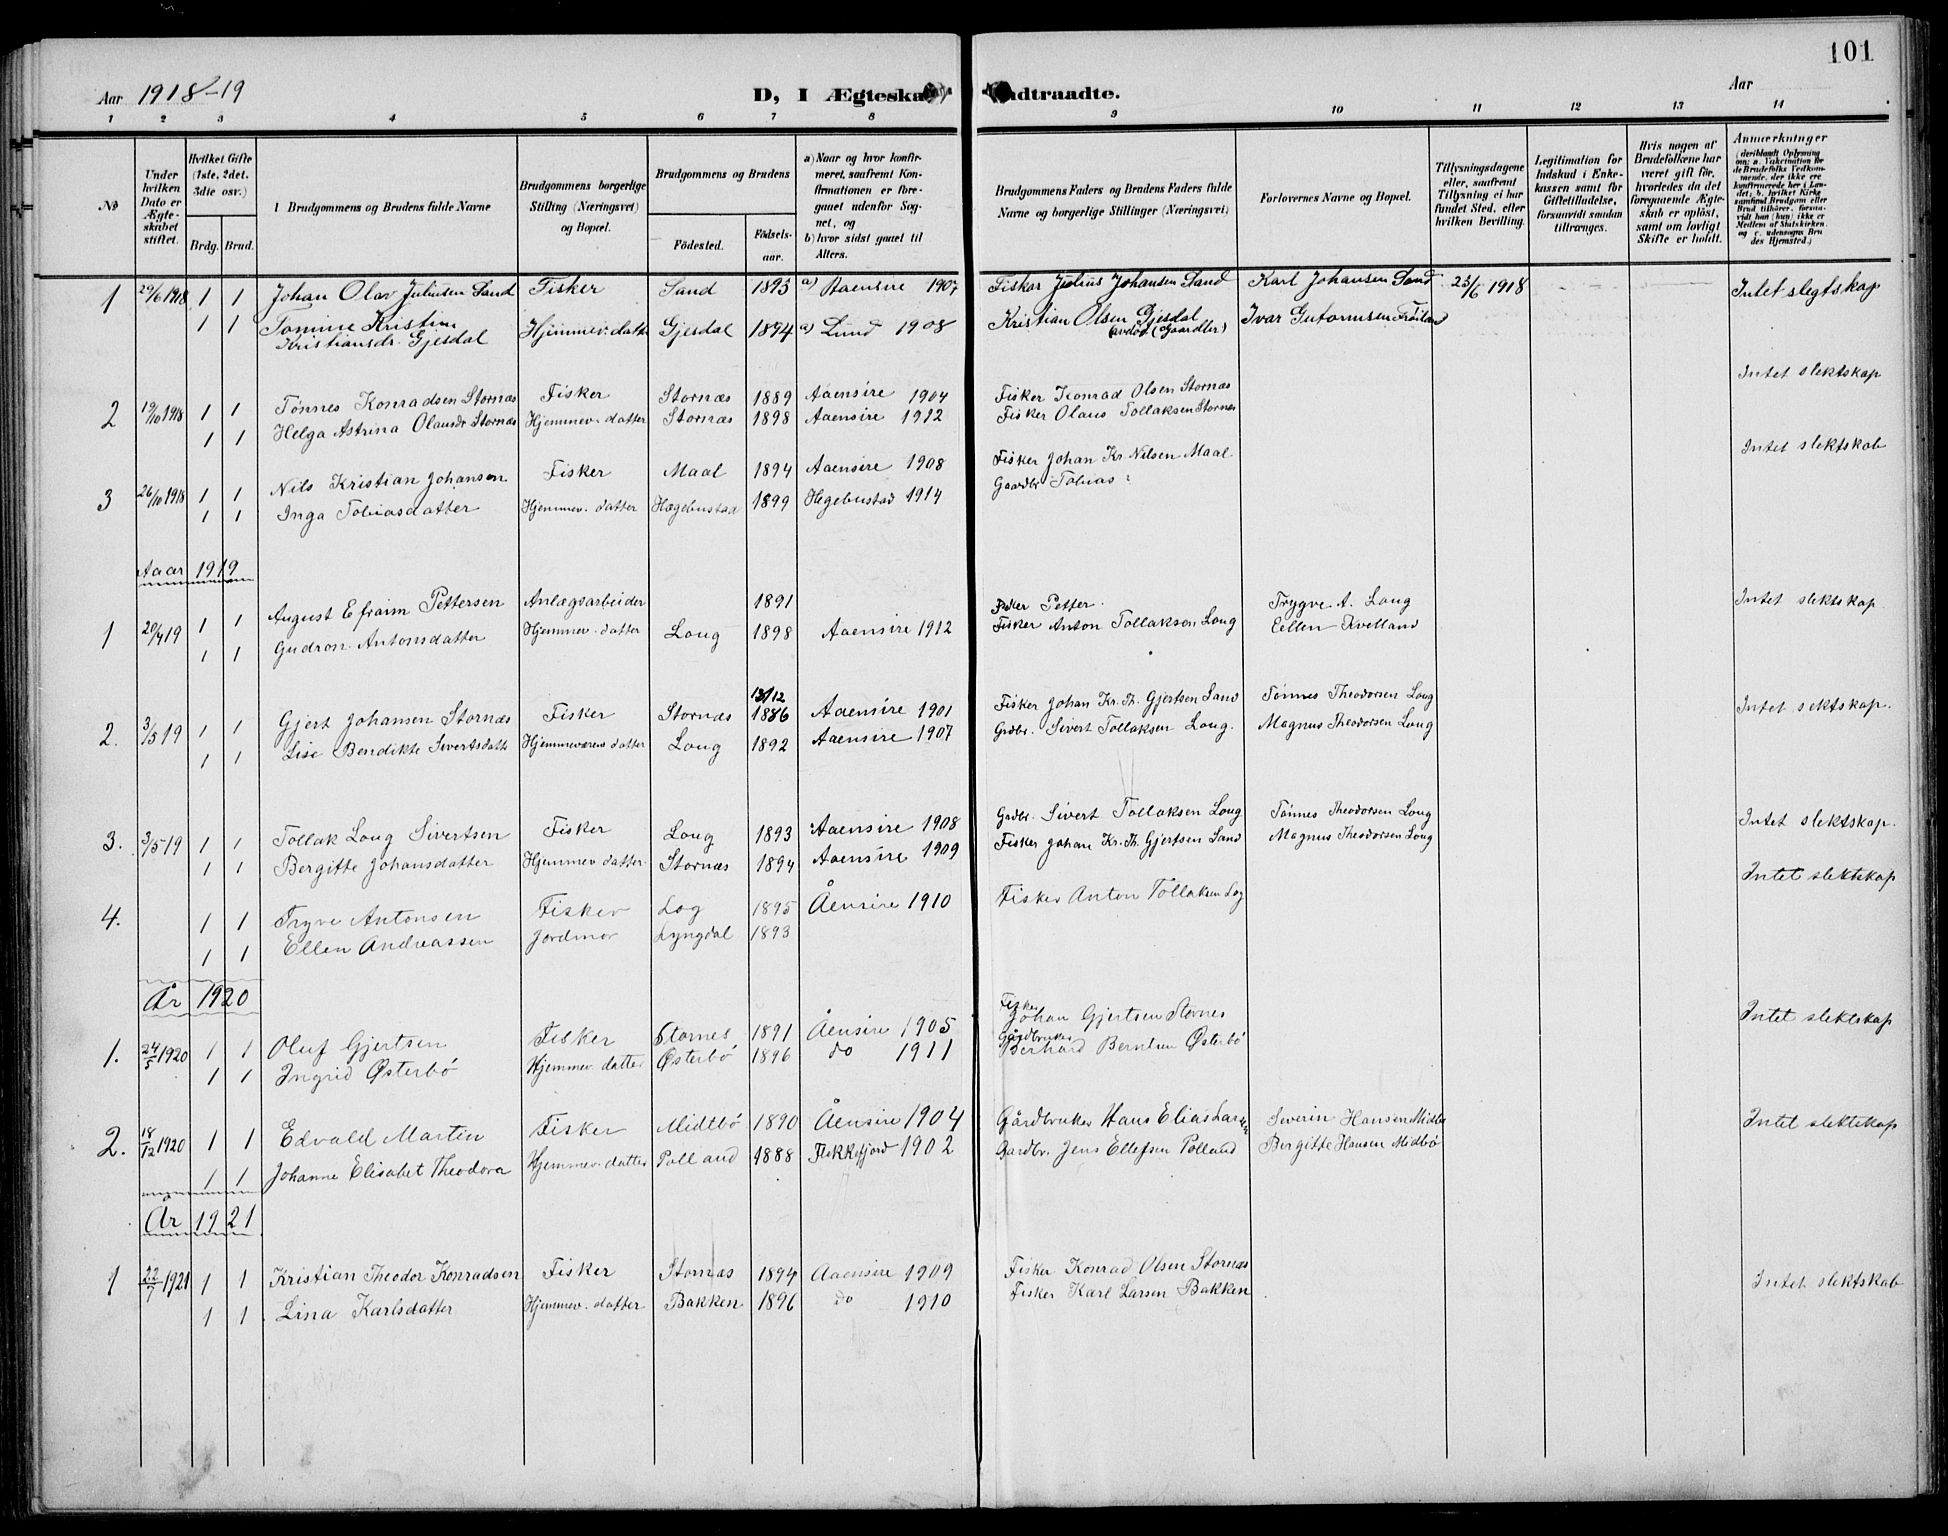 101
Aar 1918-19
D, I Ægteska
ndtraadte.
Aar
1 2 3 4 5 6 7 8 9 10 11 12 13 14
No
Under hvilken Dato er Ægteskabet stiftet.
Hvilket Gifte (1ste, 2det, 3die osv.)
Brdg. Brud.
Brudgommens og Brudens fulde Navne
Brudgommens borgerlige Stilling (Næringsvei) og Bopæl.
Brudgommens og Brudens
Fødested.
Fødselsaar.
a) Naar og hvor konfirmeret, saafremt Konfirmationen er foregaaet udenfor Sognet, og
b) hvor sidst gaaet til Alters.
Brudgommens Faders og Brudens Faders fulde Navne og borgerlige Stillinger (Næringsvei)
Forlovernes Navne og Bopæl.
Tillysningsdagene eller, saafremt Tillysning ei har fundet Sted, efter hvilken Bevilling.
Legitimation for Indskud i Enkekassen samt for Giftetilladelse, forsaavidt saadan tiltrænges.
Hvis nogen af Brudefolkene har været gift før, hvorledes da det foregaaende Ægteskab er opløst, samt om lovligt Skifte er holdt.
Anmærkninger
(deriblandt Oplysning om: a. Vakcination for de Brudefolks Vedkommende, der ikke ere konfirmerede her i Landet; b. hvilket Kirkesamfund Brudgom eller Brud tilhører, forsaavidt han (hun) ikke er Medlem af Statskirken, og c. udensogns Brudes Hjemsted.)
1 29/6 1918 1 1 Johan Olav Juliusen Sand Fisker Sand 1893 a) Aaensire 1907 Fisker Julius Johansen Sand Karl Johansen Sand 23/6 1918 Intet slegtskap
1 1 Tomine Kristine Kristiansdr. Gjesdal Hjemmev. datter Gjesdal 1894 a) Lund 1908 Kristian Olsen Gjesdal (avdød Gaardbr) Ivar Gutormsen Frøiland
2 19/10 1918 1 1 Tønnes Konradsen Stornæs Fisker Stornæs 1889 Aaensire 1904 Fisker Konrad Olsen Stornæs Intet slektskap
1 1 Helga Astrina Olausdr Stornæs Hjemmev. datter Stornæs 1898 Aaensire 1912 Fisker Olaus Tollaksen Stornæs
3 26/10 1918 1 1 Nils Kristian Johansen Fisker Maal 1894 Aaensire 1908 Fisker Johan Kr. Nilsen Maal Intet slektskab
1 1 Inga Tobiasdatter Hjemmev. datter Hægebustad 1899 Hegebustad 1914 Gaardbr Tobias ?
Aaar 1919
1 20/4 19 1 1 August Efraim Pettersen Anlægsarbeider 1891 Fisker Petter. Trygve A. Loug Intet slektskap
1 1 Gudron Antonsdatter Hjemmev. datter Loug 1898 Aaensire 1912 Fisker Anton Tollaksen Loug Eellen Kvelland
2. 3/5 19 1 1 Gjert Johansen Stornæs Fisker Stornæs 13/12 1886 Aaensire 1901 Fisker Johan Kr. Th. Gjertsen Sand Tønnes Theodorsen Loug Intet slektskap.
1 1 Lise Bendikte Sivertsdatt Hjemmeværens datter Loug 1892 Aaensire 1907 Grdbr. Sivert Tollaksen Loug. Magnus Theodorsen Loug
3. 3/5 19 1 1 Tollak Loug Sivertsen Fisker Loug 1893 Aaensire 1908 Grdbr. Sivert Tollaksen Loug Tønnes Theodorsen Loug Intet slektskap.
1 1 Bergitte Johansdatter Hjemmev. datter Stornæs 1894 Aaensire 1909 Fisker Johan Kr. Th. Gjertsen Sand Magnus Theodorsen Loug
4. 1 1 Tryve Antonsen Fisker Log 1895 Åensire 1910 Fisker Anton Tollaksen Log Intet slektskap
1 1 Ellen Andreassen Jordmor Lyngdal 1893
År 1920
1. 24/5 1920 1 1 Oluf Gjertsen Fisker Stornes 1891 Åensire 1905 Fisker Johan Gjertsen Stornes Intet slektskap
1 1 Ingrid Østerbö Hjemmev. datter Østerbö 1896 do 1911 Gårdbruker Berhard Berntsen Østerbö
2. 18/12 1920 1 1 Edvald Martin Fisker Midtbö 1890 Åensire 1904 Gårdbruker Hans Elias Larsen Severin Hansen Midbö Intet slektskap
1 1 Johanne Elisabet Theodora Hjemmev. datter Polland 1888 Flekkefjord 1902 Gardbr. Jens Ellefsen Polland Bergitte Hansen Midbö
År 1921
1 22/7 1921 1 1 Kristian Theodor Konradsen Fisker Stornæs 1894 Aaensire 1909 Fisker Konrad Olsen Stornæs Intet slektskab
1 1 Lina Karlsdatter Hjemmev. datter Bakken 1896 do 1910 Fisker Karl Larsen Bakken